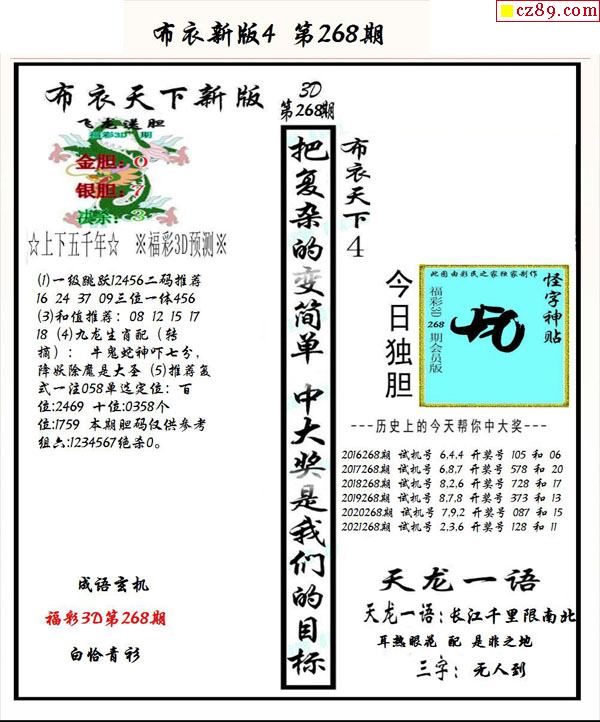 cz89.com
布衣新版4 第268期
布衣天下新版
飞龙送胆
福彩3D 期
金胆：0
银胆：7
决杀：3
☆上下五千年☆ ※福彩3D预测※
(1)一级跳跃12456二码推荐
16 24 37 09三位一体456
(3)和值推荐：08 12 15 17
18 (4)九龙生肖配（转
摘）： 牛鬼蛇神吓七分，
降妖除魔是大圣 (5)推荐复
式一注058单选定位：百
位:2469 十位:0358个
位:1759 本期胆码仅供参考
组六:1234567绝杀0。
成语玄机
福彩3D第268期
白恰青衫
3D
第268期
把复杂的变简单 中大奖是我们的目标
布衣天下4
今日独胆
此图由彩民之家独家制作
福彩3D 268 期会员版
怪字神贴
---历史上的今天帮你中大奖----
2016268期 试机号 6,4,4 开奖号 105 和 06
2017268期 试机号 6,8,7 开奖号 578 和 20
2018268期 试机号 8,2,6 开奖号 728 和 17
2019268期 试机号 8,7,8 开奖号 373 和 13
2020268期 试机号 7,9,2 开奖号 087 和 15
2021268期 试机号 2,3,6 开奖号 128 和 11
天龙一语
天龙一语：长江千里限南北
耳热眼花 配 是非之地
三字：无人到